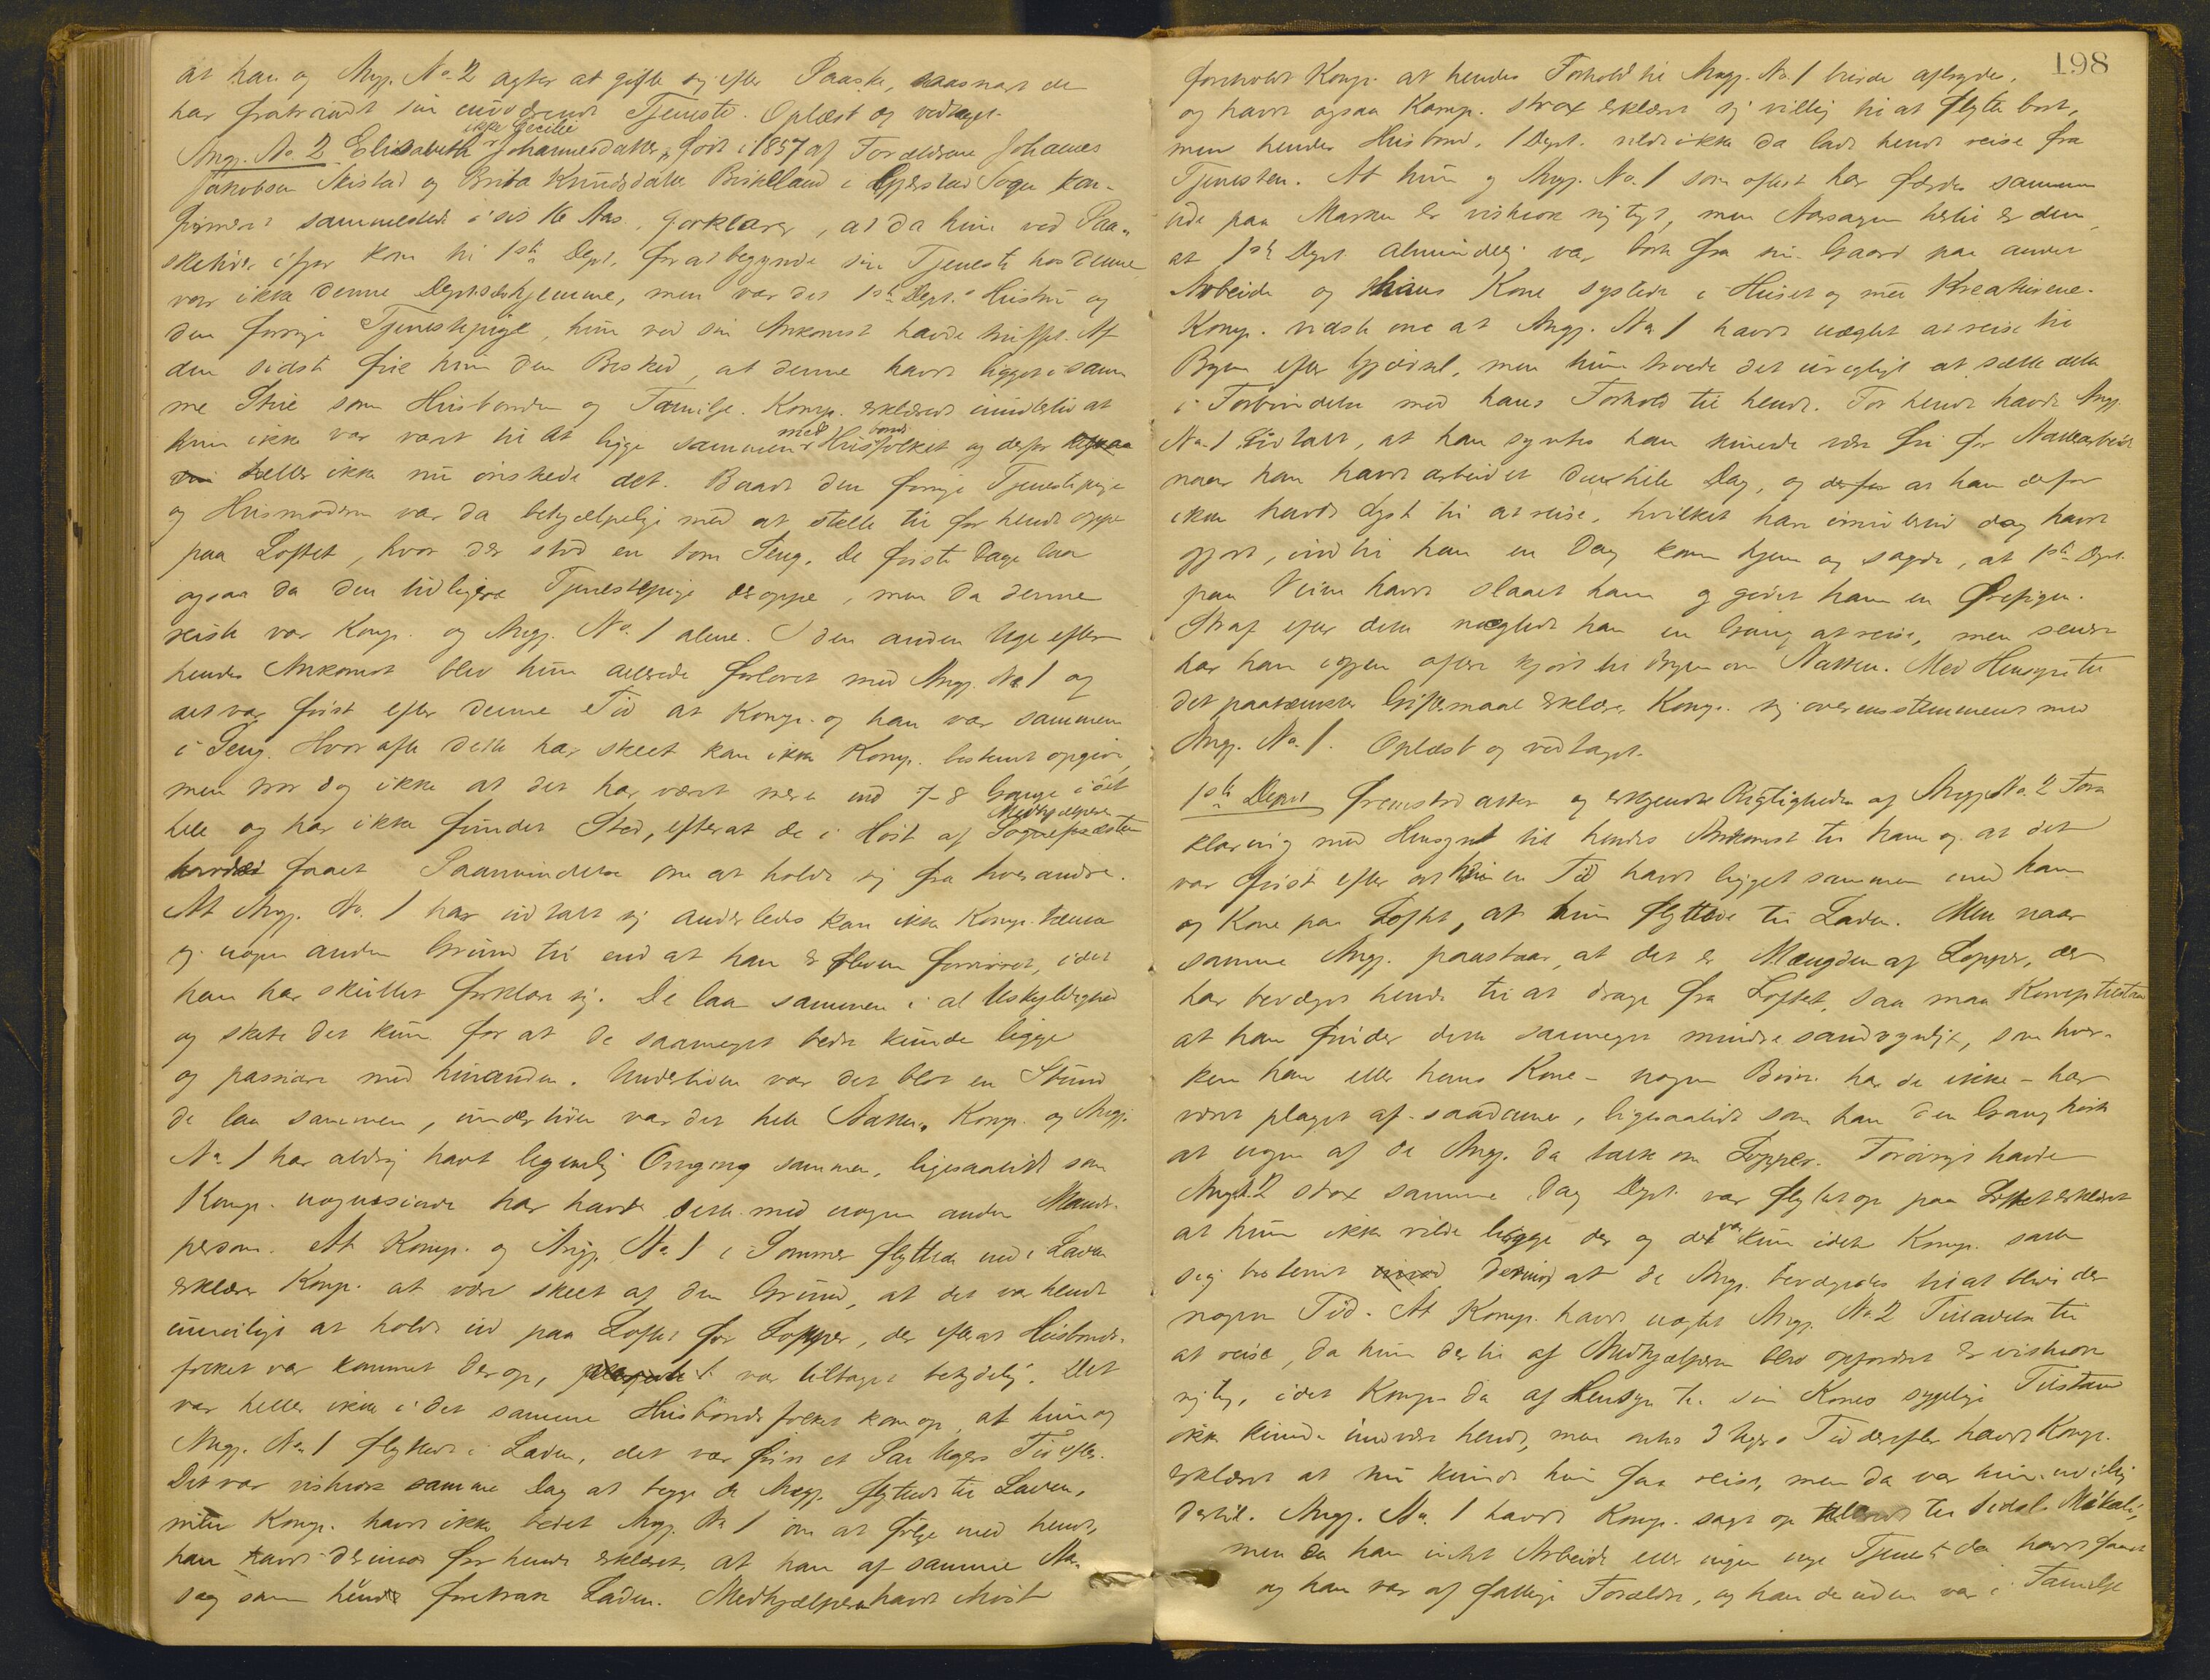 at han og Angj. No. 2 agter at gifte sig efter Paaske, saasnart de
har fratraadt sin nuværende Tjeneste. Oplæst og vedtaget.
ikke Cecilie
Ang. No 2 Elisabeth Johannesdatter, født i 1857 af Forældrene Johanes
Jakobsen Skistad og Brita Knudsdatter Birkeland i Gjerstad Sogn kon-
firmeret sammesteds i sit 16 Aar, forklarer, at da hun ved Paa-
sketider ifjor kom til 1ste Dept. for at begynde sin Tjeneste hos denne
var ikke denne Dept. hjemme, men var det 1ste Dept.s Hustru og
den forrige Tjenestepige, hun ved sin Ankomst havde truffet. Af
den sidste fik hun den Besked, at denne havde ligget i sam
me Stue som Husbonden og Familje. Komp. erklærede imidlertid at
med bonds
hun ikke var vant til at ligge sammen Husfolket og derfor
heller ikke nu ønskede det. Baade den forrige Tjenestepige
og Husmoderen var da behjælpelige med at stelle til for hende oppe
paa Loftet, hvor der stod en tom Seng. De første Dage laa
ogsaa da den tidligere Tjenestepige deroppe, men da denne
reiste var Komp. og Angj. No. 1 alene. I den anden Uge efter
hendes Ankomst blev hun allerede forlovet med Angj. No 1 og
det var først efter denne Tid at Komp. og han var sammen
i Seng. Hvor ofte dette har skeet kan ikke Komp. bestemt opgive,
men tror dog ikke at det har været mere end 7-8 Gange i det
Medhjælperen
hele og har ikke fundet Sted, efterat de i Høst af Sognepræsten
havde faaet Paamindelse om at holde sig fra hverandre.
At Angj. No. 1 har udtalt sig anderledes kan ikke Komp. tænke
sig nogen anden Grund til end at han er bleven forvirret, idet
han har skullet forklare sig. De laa sammen i al Uskyldighed
og skete det kun for at de saameget bedre kunde ligge
og passiare med hinanden. Undertiden var det blot en Stund
de laa sammen, undertiden var det hele Natten. Komp. og Angj.
No 1 har aldrig havt legemlig Omgang sammen, ligesaalidt som
Komp. nogensinde har havt dette med nogen anden Mands-
person. At Komp. og Angj. No 1 i Sommer flyttede ned i Laden
erklærer Komp. at være skeet af den Grund, at det var hende
umuligt at holde ud paa Loftet for Lopper, der efterat Husbonds-
folket var kommet derop, var tiltaget betydelig. Det
var heller ikke i det samme Husbondsfolket kom op, at hun og
Angj. No 1 flyttede i Laden, det var først et Par Ugers Tid efter.
Det var vistnok samme Dag at begge de Angj. flyttede til Laden,
men Komp. havde ikke bedet Angj. No 1 om at følge med hende,
han havde derimod for hende erklæret, at han af samme Aar
sag som hende foretrak Laden. Medhjælperen havde
198
foreholdt Komp. at hendes Forhold til Angj. No. 1 burde afbrydes,
og havde ogsaa Komp. strax erklæret sig villig til at flytte bort,
men hendes Husbond, 1 Dept. vilde ikke da lade hende reise fra
Tjenesten. At hun og Angj. No. 1 som oftest har færdes sammen
ude paa Marken er vistnok rigtigt, men Aarsagen hertil er den,
at 1ste Dept. almindelig var borte fra sin Gaard paa andet
Arbeide og hans Kone syslede i Huset og med Kreaturene.
Komp. vidste om at Angj. No 1 havde nægtet at reise til
Byen efter Gjødsel, men hun troede det urigtigt at sætte dette
i Forbindelse med hans Forhold til hende. For hende havde Angj.
No. 1 udtalt, at han syntes han kunde være fri for Nattearbeide
naar han havde arbeidet den hele Dag, og at han derfor
ikke havde Lyst til at reise, hvilket han imidlertid dog havde
gjort, indtil han en Dag kom hjem og sagde, at 1ste Dept.
paa Veien havde slaaet ham og givet ham en Ørefigen.
Strax efter dette nægtede han en Gang at reise, men senere
har han igjen oftere kjørt til Byen om Natten. Med Hensyn til
det paatænkte Giftermaal erklærer Komp. sig overensstemmende med
Angj. No. 1. Oplæst og vedtaget.
1ste Dept. fremstod atter og erkjendte Rigtigheden af Angj. No. 2 For
klaring med Hensyn til hendes Ankomst til ham og at det
var først efter at hun en Tid havde ligget sammen med ham
og Kone paa Loftet, at hun flyttede til Laden. Men naar
samme Angj. paastaar, at det er Mængden af Lopper, der
har bevæget hende til at drage fra Loftet, saa maa Komp. tilstaa
at han finder dette saameget mindre sandsynligt, som hver-
ken han eller hans Kone - nogen Børn har de ikke - har
været plaget af saadanne, ligesaalidt som han den Gang hørte
at nogen af de Angj. da talte om Lopper. Forøvrigt havde
Angj. 2 strax samme Dag Dept. var flyttet op paa Loftet erklæret
at hun ikke vilde ligge der og det var kun idet Komp. satte
sig bestemt derimod at de Angj. bevægedes til at blive der
nogen Tid. At Komp. havde nægtet Angj. No. 2 Tilladelse til
at reise, da hun dertil af Medhjælperen blev opfordret er vistnok
rigtig, idet Komp. da af Hensyn til sin Kones sygelige Tilstand
ikke kunde undvære hende, men 3 Ugers Tid derefter havde Komp.
erklæret at nu kunde hun faa reise, men da var hun uvillig
dertil. Angj. No. 1 havde Komp. sagt op til sidst. Mikali,
men da han intet Arbeide eller ingen nye Tjeneste da havde faaet
og han var af fattige Forældre, og han desuden var i Familje